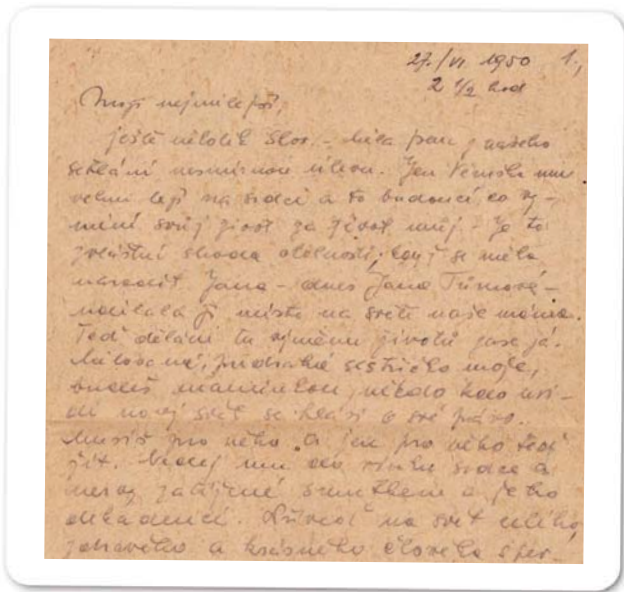 27./VI 1950 1.,
2 1/2 hod
Moji nejmilejší,
ještě několik slov. - Měla jsem z našeho
shledání nesmírnou úlevu. Jen Věruška mi
velmi leží na srdci a to budoucí, co vy-
mění svůj život za život můj. - Je to
zvláštní shoda okolností, když se měla
narodit Jana - dnes Jana Tůmová -
udělala jí místo na světě naše máma.
Teď dělám tu výměnu životů zase já.
Milovaná, předrahá sestřičko moje,
budeš maminkou, někdo kdo
nový svět se hlásí o své právo.
Musíš pro něho a jen pro něho teď
žít. mu do srdce a
nervy zatížené smutkem a jeho
dekadencí. Přiveď na svět celého,
zdravého a krásného člověka